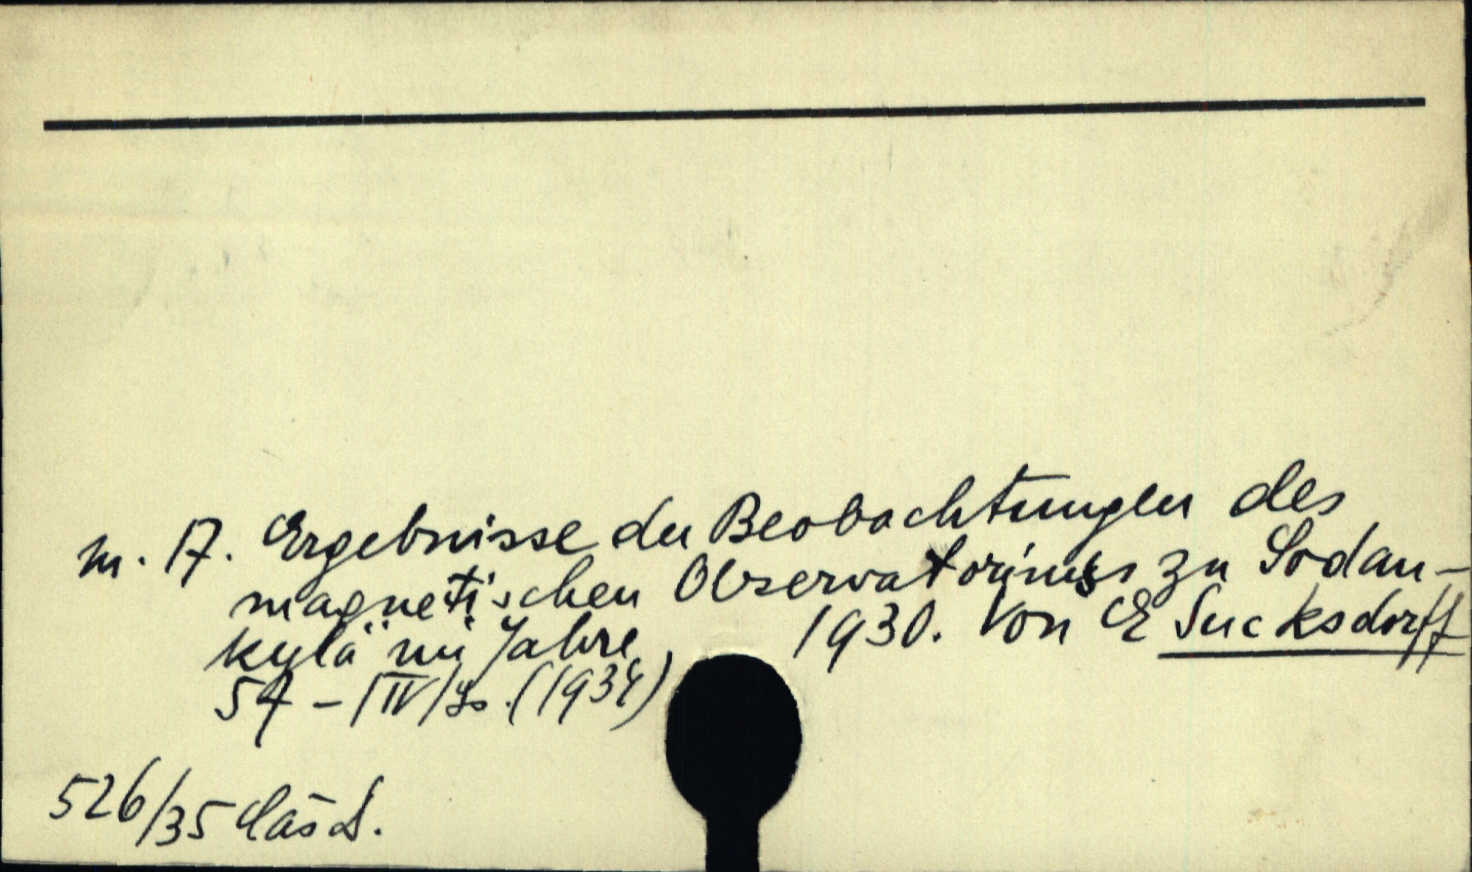 m. 17. Ergebnisse der Beobachtungen des
magnetischen Observatoriums zu Sodan-
kylä im Jahre 1930. Von E Sucksdorff
57 - IV (1934)
526/35